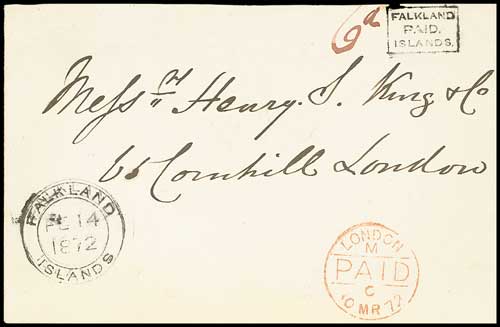 6d
FALKLAND
PAID.
ISLANDS.
Messrs Henry. S. King & Co
65 Cornhill London
FALKLAND
FE 14
1872
ISLANDS
LONDON
M
PAID
C
10 MR 72